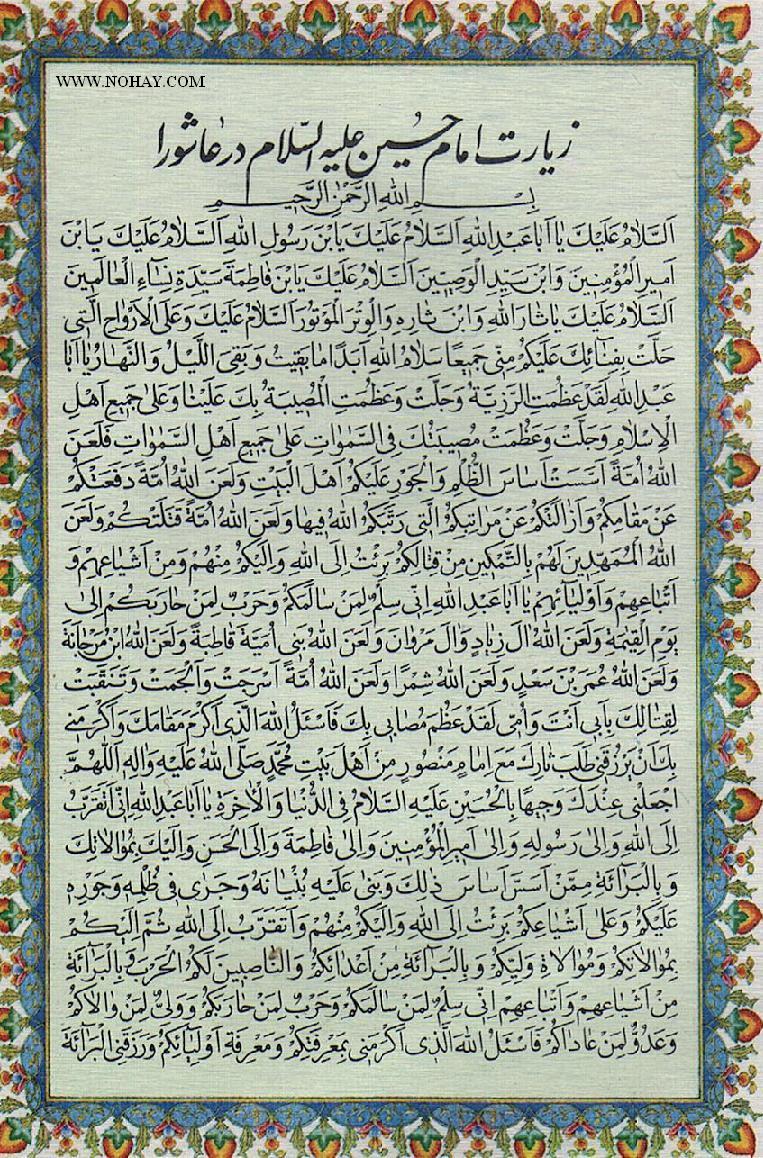 WWW.NOHAY.COM
زیارت امام حسین علیه السّلام در عاشورا
بِسْمِ اللهِ الرَّحْمٰنِ الرَّحیمِ
اَلسَّلامُ عَلَیْكَ یا اَبا عَبْدِ اللهِ اَلسَّلامُ عَلَیْكَ یَا بْنَ رَسُولِ اللهِ اَلسَّلامُ عَلَیْكَ یَا بْنَ
اَمیرِ الْمُؤْمِنینَ وَابْنَ سَیِّدِ الْوَصِیّینَ اَلسَّلامُ عَلَیْكَ یَا بْنَ فاطِمَةَ سَیِّدَةِ نِساءِ الْعالَمینَ
اَلسَّلامُ عَلَیْكَ یا ثارَ اللهِ وَابْنَ ثارِهِ وَالْوِتْرَ الْمَوْتُورَ اَلسَّلامُ عَلَیْكَ وَعَلَى الْاَرْواحِ الَّتی
حَلَّتْ بِفِنائِكَ عَلَیْكُمْ مِنّی جَمیعًا سَلامُ اللهِ اَبَدًا ما بَقیتُ وَبَقِیَ اللَّیْلُ وَالنَّهارُ یا اَبا
عَبْدِ اللهِ لَقَدْ عَظُمَتِ الرَّزِیَّةُ وَجَلَّتْ وَعَظُمَتِ الْمُصیبَةُ بِكَ عَلَیْنا وَعَلىٰ جَمیعِ اَهْلِ
الْاِسْلامِ وَجَلَّتْ وَعَظُمَتْ مُصیبَتُكَ فِی السَّمٰواتِ عَلىٰ جَمیعِ اَهْلِ السَّمٰواتِ فَلَعَنَ
اللهُ اُمَّةً اَسَّسَتْ اَساسَ الظُّلْمِ وَالْجَوْرِ عَلَیْكُمْ اَهْلَ الْبَیْتِ وَلَعَنَ اللهُ اُمَّةً دَفَعَتْكُمْ
عَنْ مَقامِكُمْ وَاَزالَتْكُمْ عَنْ مَراتِبِكُمُ الَّتی رَتَّبَكُمُ اللهُ فیها وَلَعَنَ اللهُ اُمَّةً قَتَلَتْكُمْ وَلَعَنَ
اللهُ الْمُمَهِّدینَ لَهُمْ بِالتَّمْكینِ مِنْ قِتالِكُمْ بَرِئْتُ اِلَى اللهِ وَاِلَیْكُمْ مِنْهُمْ وَمِنْ اَشْیاعِهِمْ وَ
اَتْباعِهِمْ وَاَوْلِیائِهِمْ یا اَبا عَبْدِ اللهِ اِنّی سِلْمٌ لِمَنْ سالَمَكُمْ وَحَرْبٌ لِمَنْ حارَبَكُمْ اِلىٰ
یَوْمِ الْقِیٰمَةِ وَلَعَنَ اللهُ اٰلَ زِیادٍ وَاٰلَ مَرْوانَ وَلَعَنَ اللهُ بَنی اُمَیَّةَ قاطِبَةً وَلَعَنَ اللهُ ابْنَ مَرْجانَةَ
وَلَعَنَ اللهُ عُمَرَ بْنَ سَعْدٍ وَلَعَنَ اللهُ شِمْرًا وَلَعَنَ اللهُ اُمَّةً اَسْرَجَتْ وَاَلْجَمَتْ وَتَنَقَّبَتْ
لِقِتالِكَ بِاَبی اَنْتَ وَاُمّی لَقَدْ عَظُمَ مُصابی بِكَ فَاَسْئَلُ اللهَ الَّذی اَكْرَمَ مَقامَكَ وَاَكْرَمَنی
بِكَ اَنْ یَرْزُقَنی طَلَبَ ثارِكَ مَعَ اِمامٍ مَنْصُورٍ مِنْ اَهْلِ بَیْتِ مُحَمَّدٍ صَلَّى اللهُ عَلَیْهِ وَاٰلِهِ اَللّٰهُمَّ
اجْعَلْنی عِنْدَكَ وَجیهًا بِالْحُسَیْنِ عَلَیْهِ السَّلامُ فِی الدُّنْیا وَالْاٰخِرَةِ یا اَبا عَبْدِ اللهِ اِنّی اَتَقَرَّبُ
اِلَى اللهِ وَاِلىٰ رَسُولِهِ وَاِلىٰ اَمیرِ الْمُؤْمِنینَ وَاِلىٰ فاطِمَةَ وَاِلَى الْحَسَنِ وَاِلَیْكَ بِمُوالاتِكَ
وَبِالْبَرائَةِ مِمَّنْ اَسَّسَ اَساسَ ذٰلِكَ وَبَنىٰ عَلَیْهِ بُنْیانَهُ وَجَرىٰ فی ظُلْمِهِ وَجَوْرِهِ
عَلَیْكُمْ وَعَلىٰ اَشْیاعِكُمْ بَرِئْتُ اِلَى اللهِ وَاِلَیْكُمْ مِنْهُمْ وَاَتَقَرَّبُ اِلَى اللهِ ثُمَّ اِلَیْكُمْ
بِمُوالاتِكُمْ وَمُوالاةِ وَلِیِّكُمْ وَبِالْبَرائَةِ مِنْ اَعْدائِكُمْ وَالنّاصِبینَ لَكُمُ الْحَرْبَ وَبِالْبَرائَةِ
مِنْ اَشْیاعِهِمْ وَاَتْباعِهِمْ اِنّی سِلْمٌ لِمَنْ سالَمَكُمْ وَحَرْبٌ لِمَنْ حارَبَكُمْ وَوَلِیٌّ لِمَنْ والاكُمْ
وَعَدُوٌّ لِمَنْ عاداكُمْ فَاَسْئَلُ اللهَ الَّذی اَكْرَمَنی بِمَعْرِفَتِكُمْ وَمَعْرِفَةِ اَوْلِیائِكُمْ وَرَزَقَنِی الْبَرائَةَ